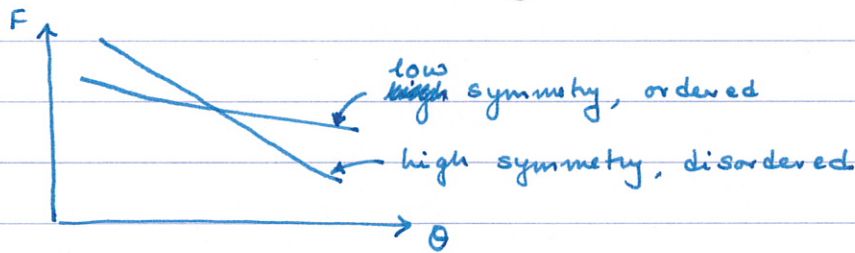 F
low
symmetry, ordered
high symmetry, disordered
θ